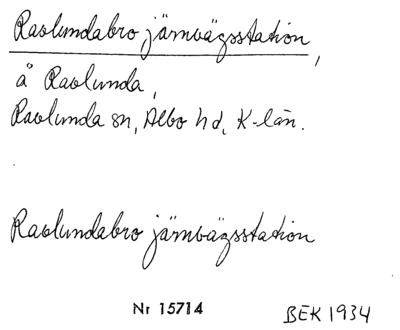 Ravlundabro järnvägsstation,
å Ravlunda,
Ravlunda sn, Albo hd, K-län.
Ravlundabro järnvägsstation
Nr 15714 BEK 1934